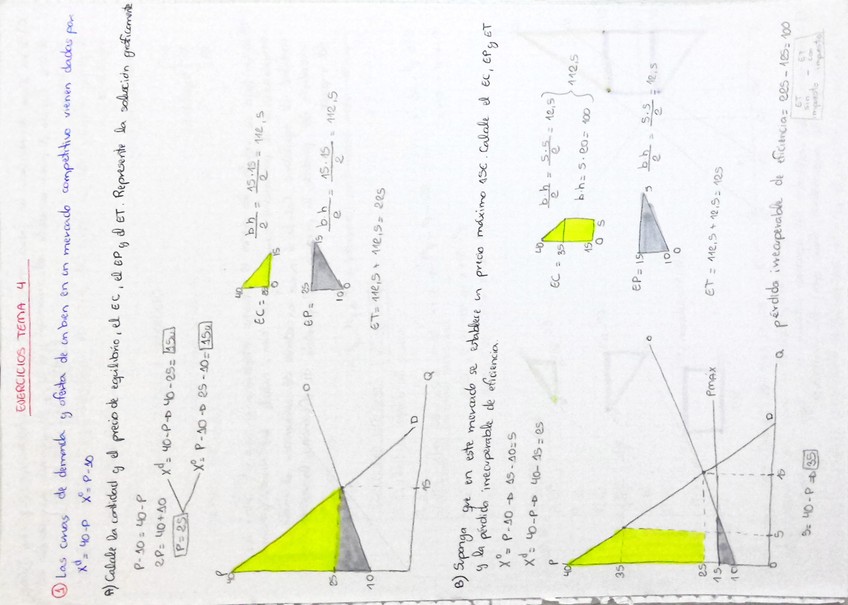 EJERCICIOS TEMA 4
① Las curvas de demanda y oferta de un bien en un mercado competitivo vienen dadas por
Xᵈ = 40-P X⁰ = P-10
A) Calcule la cantidad y el precio de equilibrio, el EC, el EP y el ET. Represente la solución gráficamente
P-10 = 40-P
2P = 40+10
P = 25
Xᵈ = 40-P → 40-25 = 15u
X⁰ = P-10 → 25-10 = 15u
P
40
25
10
15
O
D
Q
EC =
40
25
0
15
b·h/2 = 15·15/2 = 112,5
EP =
25
10
0
15
b·h/2 = 15·15/2 = 112,5
ET = 112,5 + 112,5 = 225
B) Suponga que en este mercado se establece un precio máximo 15€. Calcule el EC, EP y ET
y la pérdida irrecuperable de eficiencia.
X⁰ = P-10 → 15-10 = 5
Xᵈ = 40-P → 40-15 = 25
P
40
35
25
15
10
0
5
10
O
PMAX
D
Q
5 = 40-P → 35
EC =
40
35
15
0
5
b·h/2 = 5·5/2 = 12,5
b·h = 5·20 = 100
112,5
EP =
15
10
0
5
b·h/2 = 5·5/2 = 12,5
ET = 112,5 + 12,5 = 125
pérdida irrecuperable de eficiencia = 225 - 125 = 100
ET sin impuesto - ET con impuesto